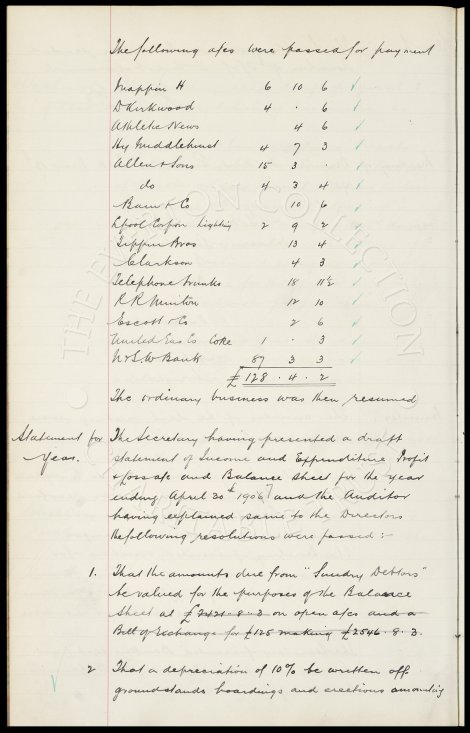 The following a/cs were passed for payment
Mappin H 6 10 6
D Kirkwood 4 . 6
Athletic News 4 6
Hy Middlehurst 4 7 3
Allen & Sons 15 3 .
do 4 3 4
& Co 10 6
Lpool Corpon Lighting 2 9 2
Tippin Bros 13 4
Clarkson 4 3
Telephone trunks 18 11½
R R Minton 12 10
Escott & Co 2 6
United Gas Co Coke 1 . 3
N & S. W Bank 87 3 3
£128 . 4 . 2
The ordinary business was then resumed
Statement for Year.
The Secretary having presented a draft
statement of Income and Expenditure Profit
& Loss a/c and Balance Sheet for the year
ending April 30th 1906 and the Auditor
having explained same to the Directors
the following resolutions were passed :-
1. That the amounts due from "Sundry Debtors"
be valued for the purposes of the Balance
Sheet at £2421 . 8 . 3 on open a/cs and a
Bill of Exchange for £125 making £2546 . 8 . 3.
2 That a depreciation of 10% be written off
ground stands hoardings and erections amounting
THE EVERTON COLLECTION